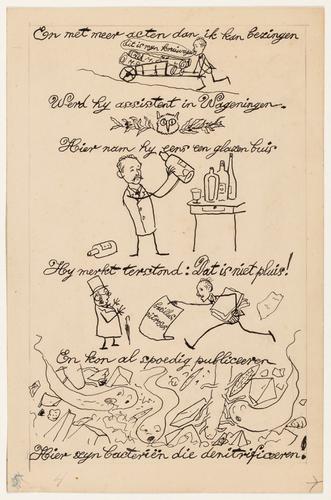 En met meer acten dan ik kan bezingen
dit is mijn
Werd hy assistent in Wageningen.
Hier nam hy eens een glazen buis
Hy merkt terstond: Dat is niet pluis!
En kon al spoedig publiceeren
Hier zyn bacteriën die denitrificeeren!